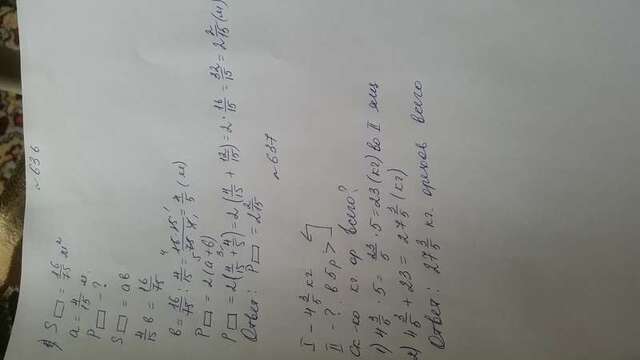 №636
1) S▭ = 16/75 м²
a = 4/15 м
P▭ - ?
S▭ = aв
4/15 в = 16/75
в = 16/75 : 4/15 = 16·15/75·4 = 4/5 (м)
P▭ = 2(a+в)
P▭ = 2(4/15 + 4/5) = 2(4/15 + 12/15) = 2·16/15 = 32/15 = 2 2/15 (м)
Ответ: P▭ = 2 2/15
№637
I - 4 3/5 кг
II - ? в 5 р >
Ск-ко кг. ор всего?
1) 4 3/5 · 5 = 23/5 · 5 = 23 (кг) во II ящ
2) 4 3/5 + 23 = 27 3/5 (кг)
Ответ: 27 3/5 кг. орехов всего